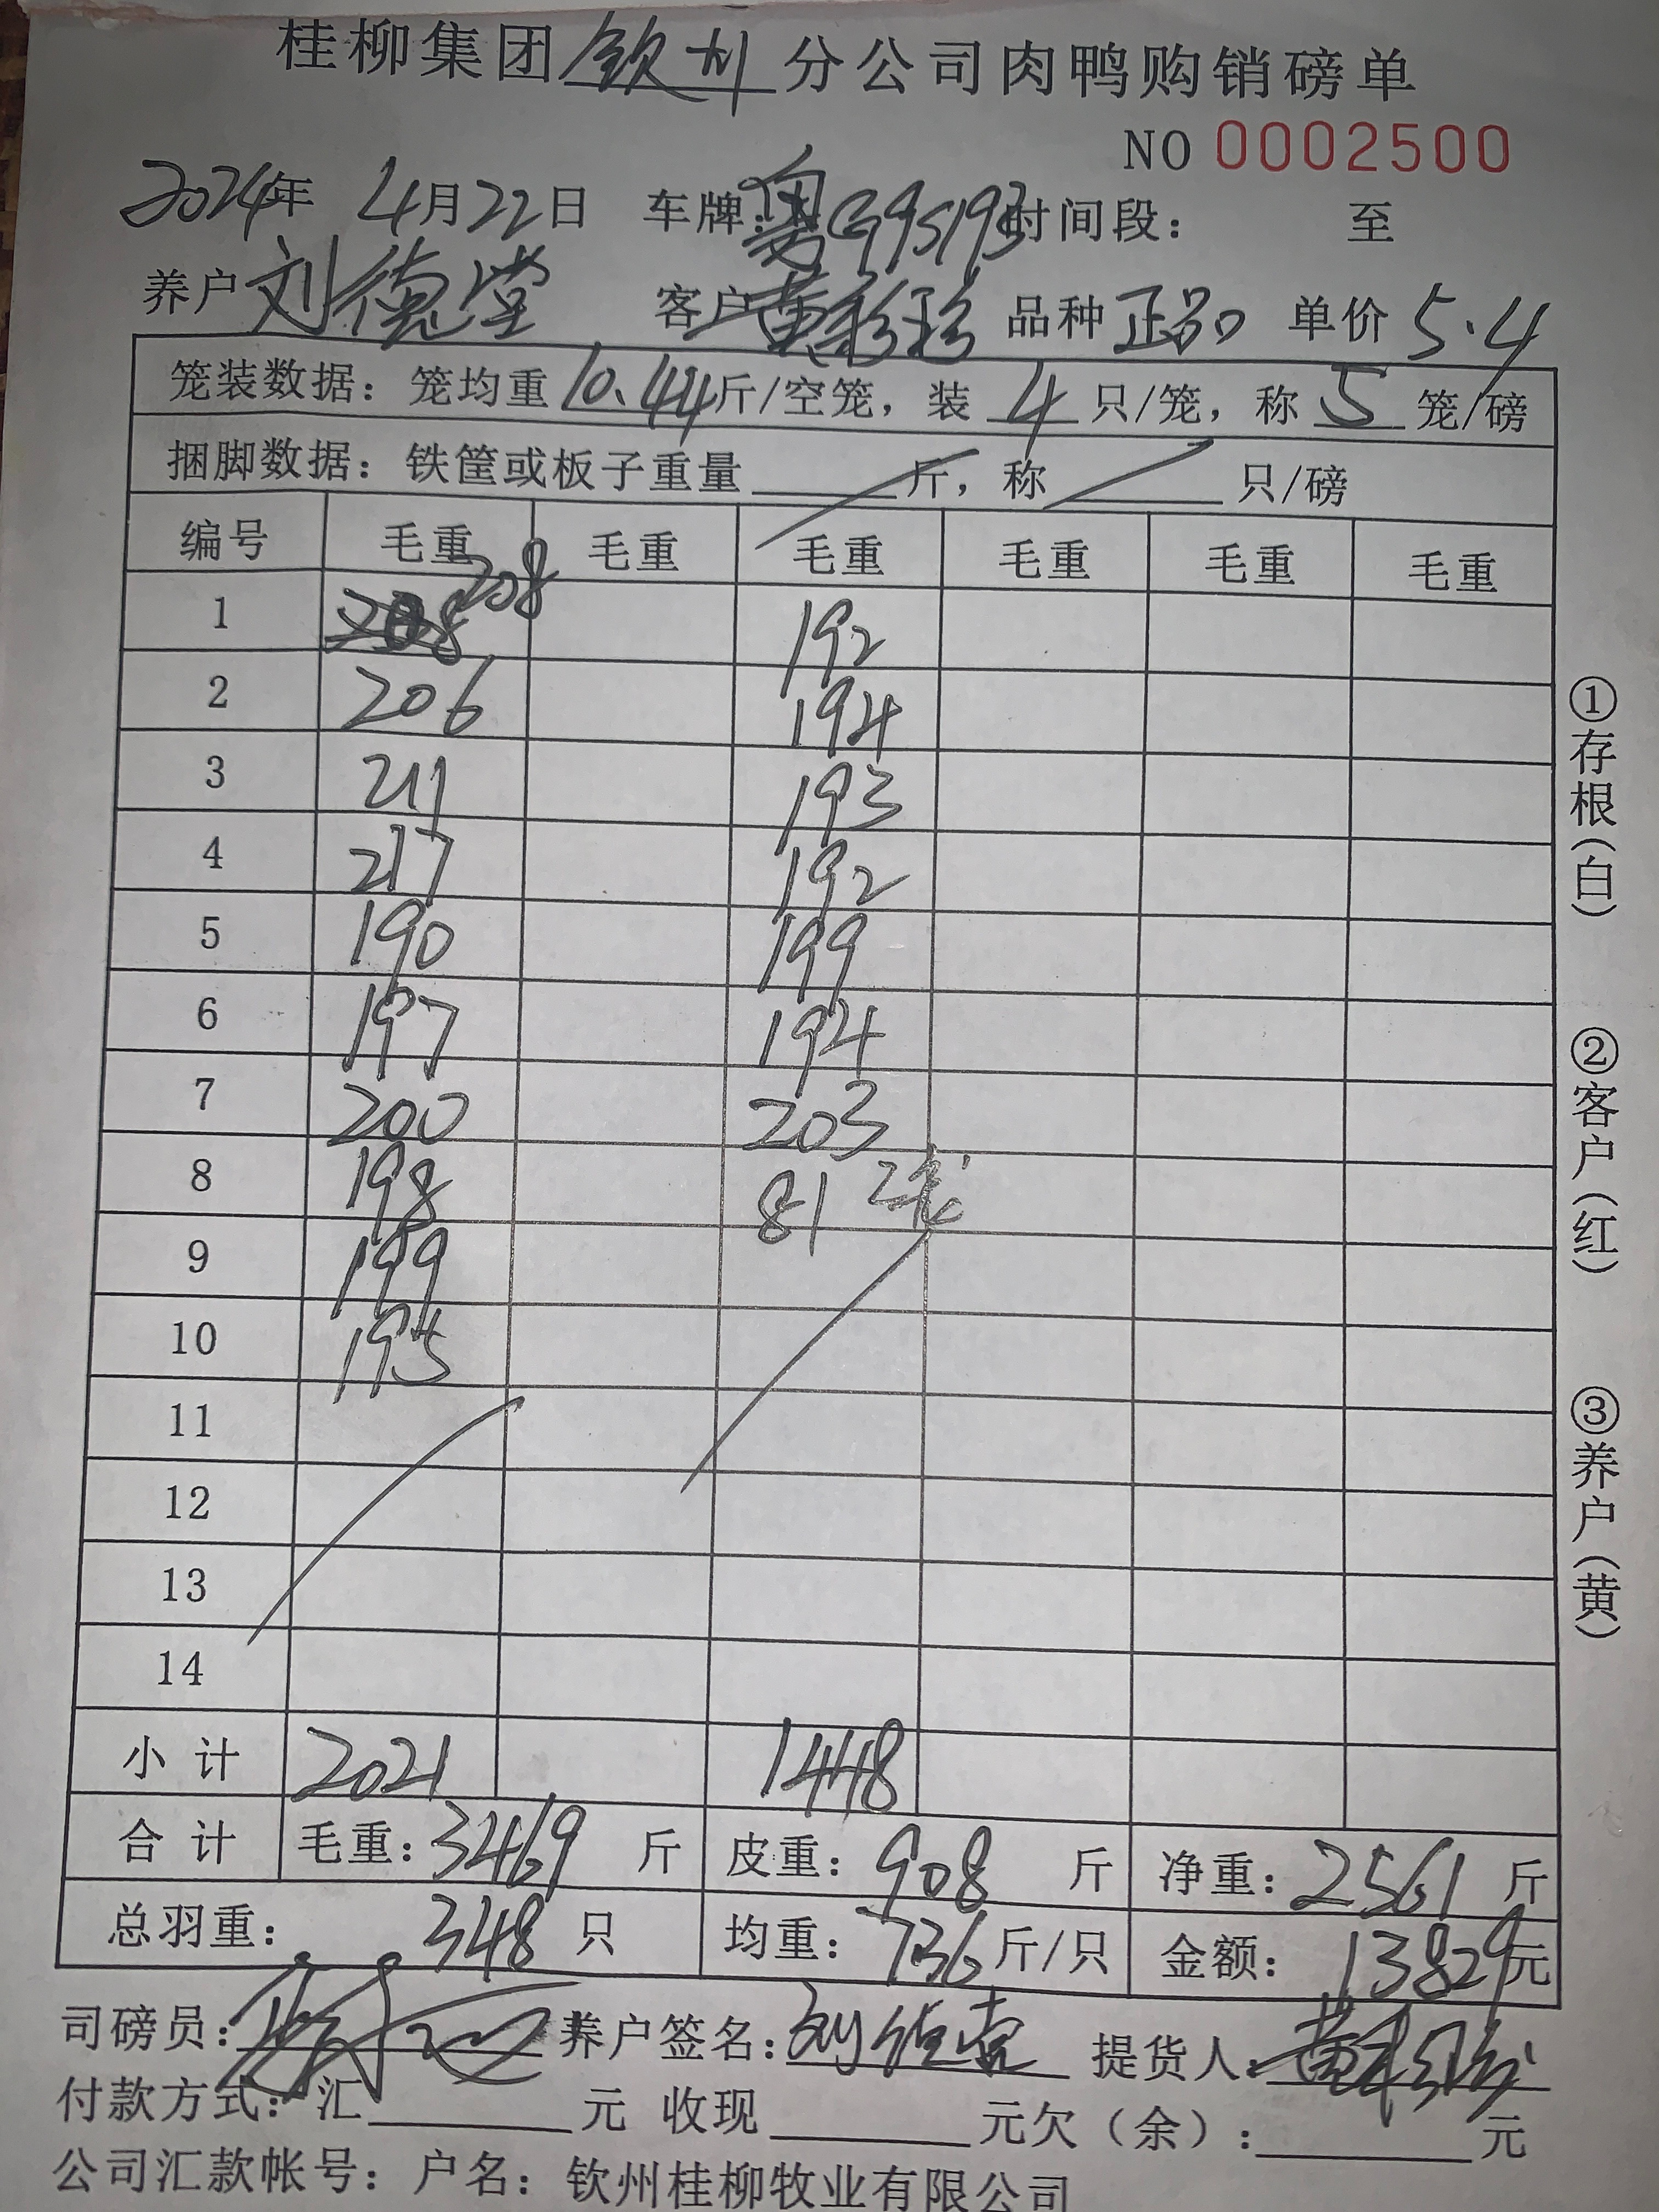 桂柳集团钦州分公司肉鸭购销磅单
NO 0002500
2024年 4月22日 车牌:粤G9S193时间段: 至
养户 刘德堂 客户 黄彩珍 品种 正品 单价 5.4
笼装数据: 笼均重10.44斤/空笼, 装 4 只/笼, 称 5 笼/磅
捆脚数据: 铁筐或板子重量 斤, 称 只/磅
编号 毛重 毛重 毛重 毛重 毛重 毛重
1 208 192
2 206 194
3 211 193
4 217 192
5 190 199
6 197 194
7 200 203
8 198 81 2笼
9 199
10 195
11
12
13
14
小 计 2021 1448
合 计 毛重: 3469 斤 皮重: 908 斤 净重: 2561 斤
总羽重: 348 只 均重: 7.36 斤/只 金额: 13829元
司磅员: 养户签名: 刘德堂 提货人:
付款方式: 汇 元 收现 元欠(余): 元
公司汇款帐号: 户名: 钦州桂柳牧业有限公司
①存根(白)
②客户(红)
③养户(黄)